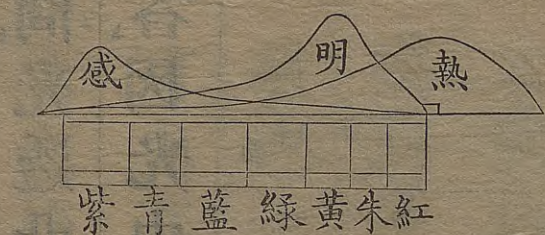 感 明 熱
紫 青 藍 緑 黄 朱 紅